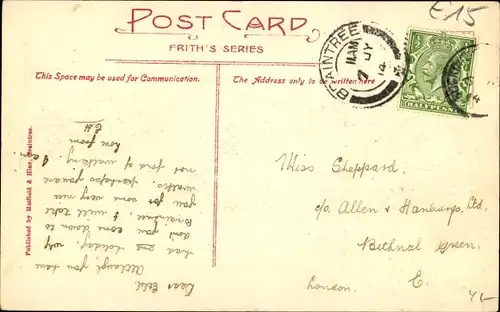 POST CARD
FRITH'S SERIES
This Space may be used for Communication.
The Address only to be written here
£15
BRAINTREE
11 AM
7 JY
14
HALFPENNY
Miss Sheppard.
c/o Allen & Hanburys Ltd.
Bethnal Green.
London. E.
4/-
Dear
Although you have
had one holiday, why
don't you come down to
Braintree, I will take
you for some very nice
walks. Perhaps you are
not fond of walking I am.
love from
EH
Published by Hatfield & Hine, Braintree.